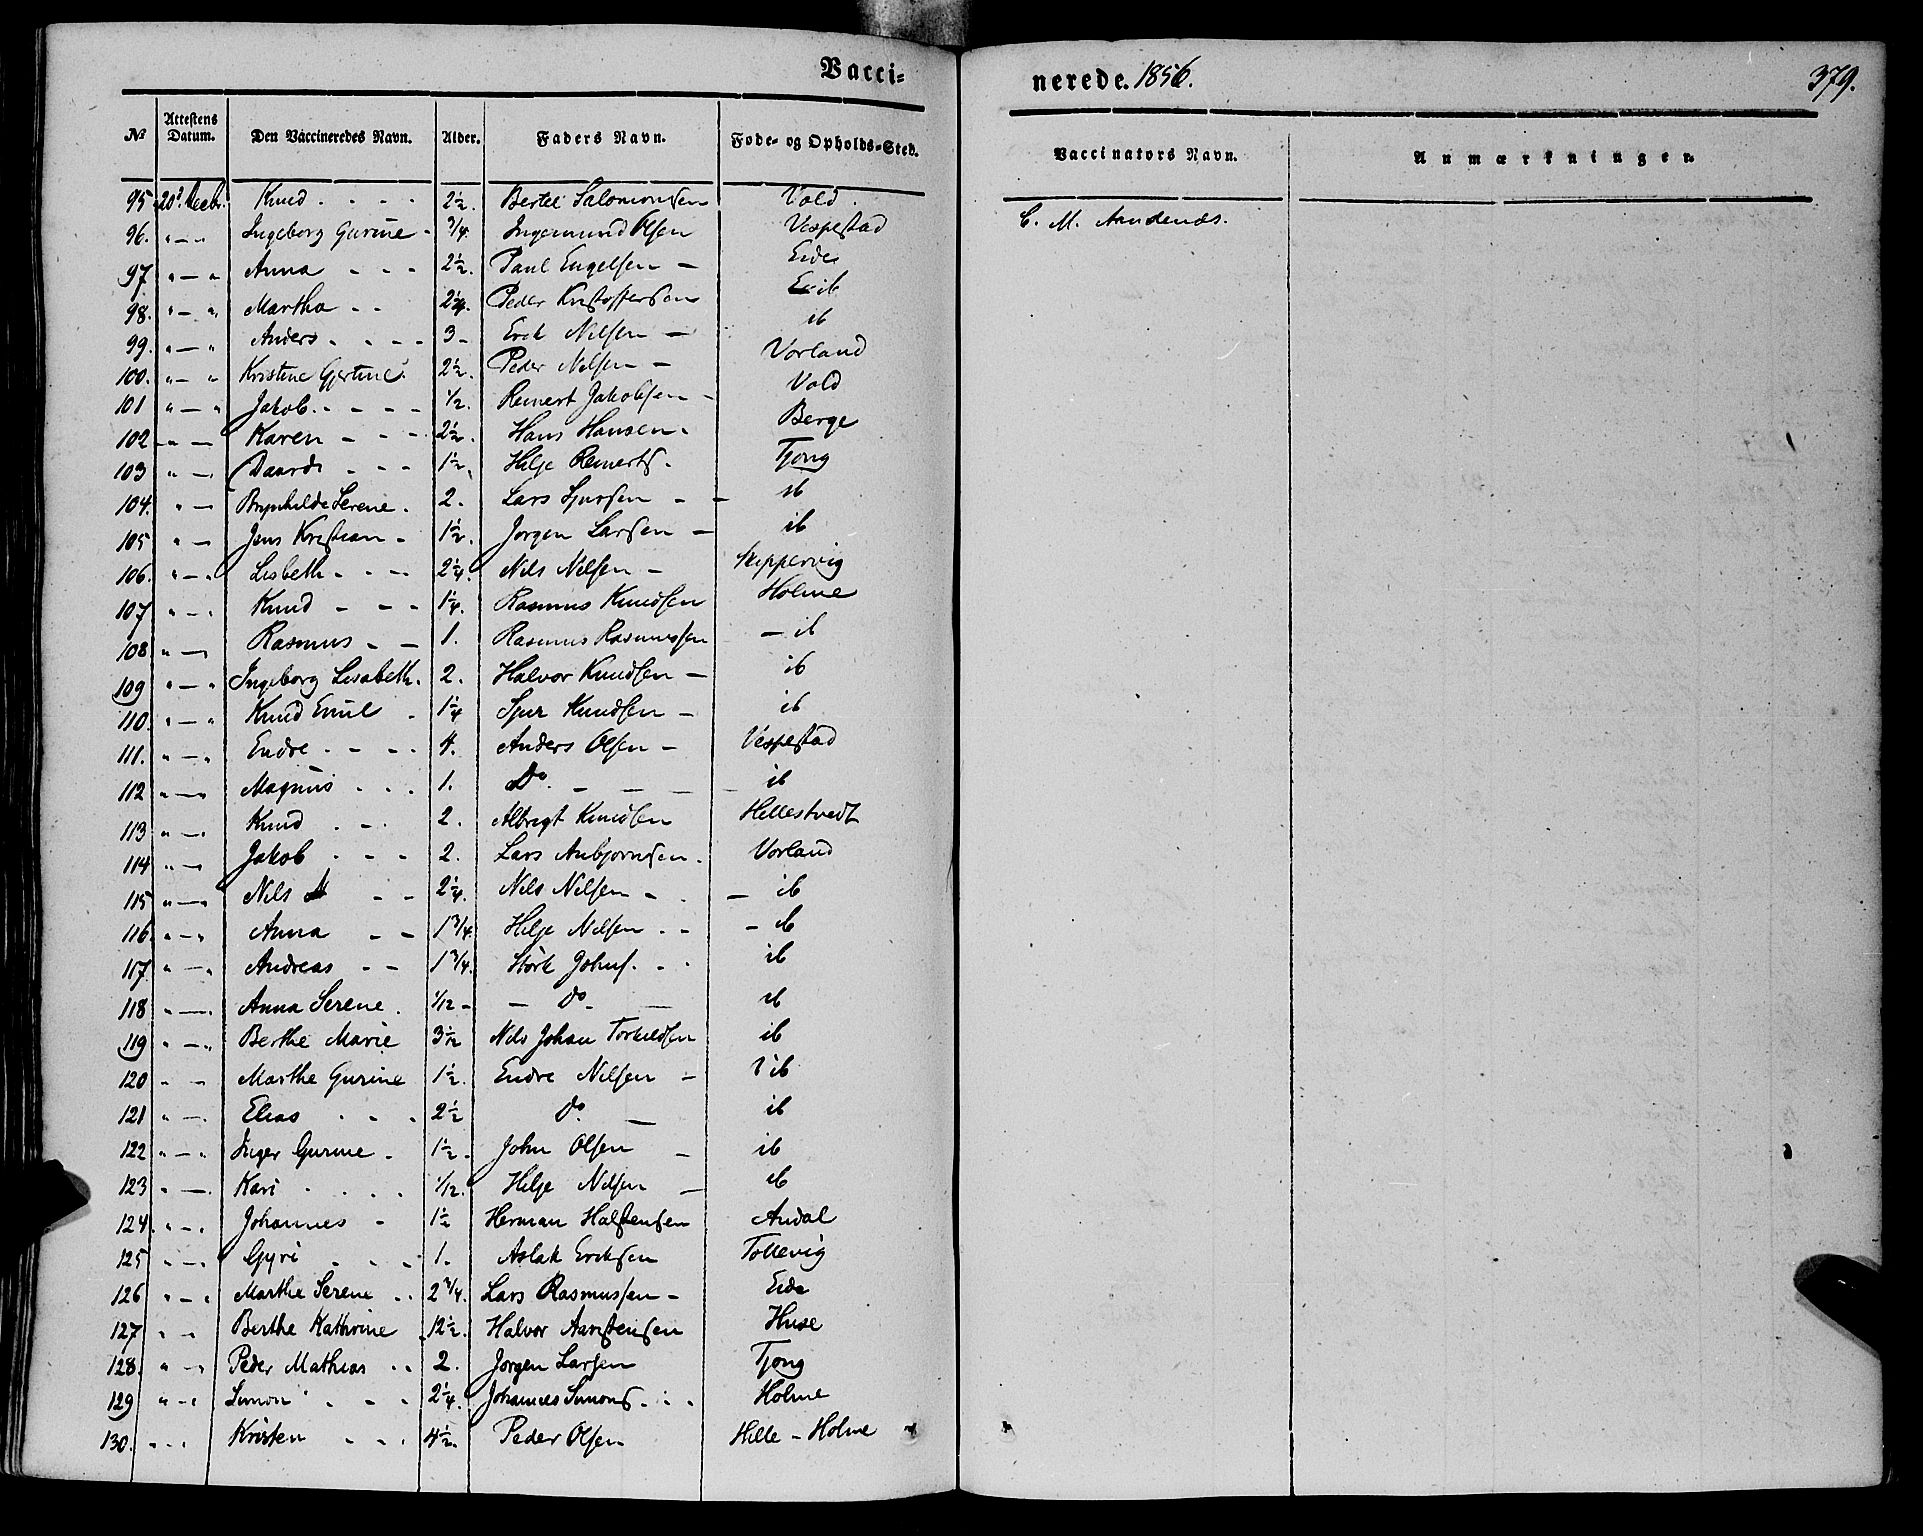 Vacci=
nerede. 1856.
379.
№ Attestens Datum. Den Vaccineredes Navn. Alder. Faders Navn. Føde- og Opholds-Sted. Vaccinators Navn. Anmærkninger.
95 20d Decbr. Knud - - - - 2½. Bertel Salomonsen Vold. C. M. Aandenæs.
96. " — " Ingeborg Gurine - ¾. Ingemund Olsen Vespestad
97 " — " Anna - - - 2½. Paul Engelsen — Eide
98. " — " Martha - - 2¼. Peder Kristoffersen ib
99. " — " Anders - - - - 3 - Erik Nilsen — ib
100. " — " Kristine Gjertine. 2½. Peder Nilsen — Vorland
101 " — " Jakob - - - - ½. Reinert Jakobsen - Vold
102 - " — Karen - - - - 2½. Hans Hansen. Berge
103 " — Baard - - - 1½. Helje Reinerts. Tjong
104. " — Brynhilde Serene. 2. Lars Sjursen - - ib
105 " — Jens Kristian - 1½. Jorgen Larsen — ib
106. " — " Lisbeth - - - 2¼. Nils Nilsen — Skippervig
107 " — " Knud - - - 1¼. Rasmus Knudsen Holme
108 " — Rasmus - — 1. Rasmus Rasmussen — ib
109 " — " Ingeborg Lisabeth. 2. Halvor Knudsen — ib
110. " — " Knud Emil - 1¼ Sjur Knudsen — ib
111. " — " Endre - - - - 4. Anders Olsen — Vespestad
112 " — " Magnus - - - 1. Do. — — — ib
113 " — " Knud - - 2. Albregt Knudsen Hellestvedt
114 " — Jakob - - - 2. Lars Anbjørnsen. Vorland
115 " — " Nils - - 2¼. Nils Nilsen - - — ib
116. " — " Anna - — 1¾. Helje Nilsen - - - ib
117. " — " Andreas - — 1¾. Størk Johns. - - ib
118 " — Anna Serene. 1/12 - — do — ib
119 " — " Berthe Marie 3½ Nils Johan Torkildsen ib
120 " — " Marthe Gurine 1½. Endre Nilsen — ib
121 " — Elias - - - 2½ do. — ib
122 " — " Inger Gurine - 1½. John Olsen — ib
123 " — Kari - - - - 1/12. Helje Nilsen — ib
124. " — " Johannes - 1½ Herman Halstensen Andal
125 " — " Gyri - - - 1. Aslak Eriksen Tollevig
126 " — " Marthe Serene - - 2¾. Lars Rasmussen - Eide
127 " " Berthe Kathrine 12½. Halvor Aanstensen Huse
128. " — " Peder Mathias - - 2. Jorgen Larsen Tjong
129 " — " Simon - - - 2¼. Johannes Simons - - - Holme
130. " - " Kristen - - - 4½. Peder Olsen Hille - Holme